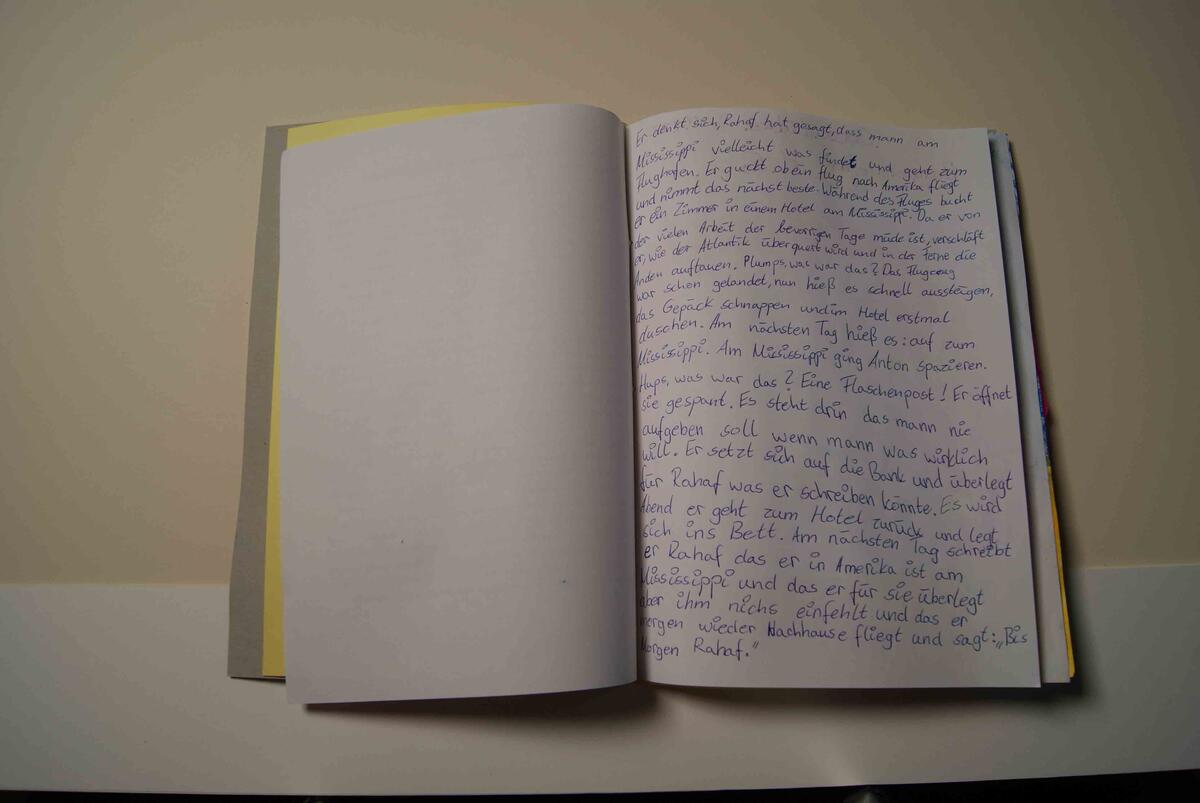 Er denkt sich, Rahaf hat gesagt, dass mann am
Mississippi vielleicht was findet und geht zum
Flughafen. Er guckt ob ein flug nach Amerika fliegt
und nimmt das nächst beste. Während des Fluges bucht
er ein Zimmer in einem Hotel am Mississippi. Da er von
der vielen Arbeit der bevorrigen Tage müde ist, verschläft
er, wie der Atlantik überquert wird und in der Ferne die
Anden auftauen. Plumps, was war das? Das Flugzeug
war schon gelandet, nun hieß es schnell aussteigen,
das Gepäck schnappen und im Hotel erstmal
duschen. Am nächsten Tag hieß es: auf zum
Mississippi. Am Mississippi ging Anton spazieren.
Hups, was war das? Eine Flaschenpost! Er öffnet
sie gespant. Es steht drin das mann nie
aufgeben soll wenn mann was wirklich
will. Er setzt sich auf die Bank und überlegt
für Rahaf was er schreiben könnte. Es wird
Abend er geht zum Hotel zurück und legt
sich ins Bett. Am nächsten Tag schreibt
er Rahaf das er in Amerika ist am
Mississippi und das er für sie überlegt
aber ihm nichs einfehlt und das er
morgen wieder Nachhause fliegt und sagt: „Bis
Morgen Rahaf."